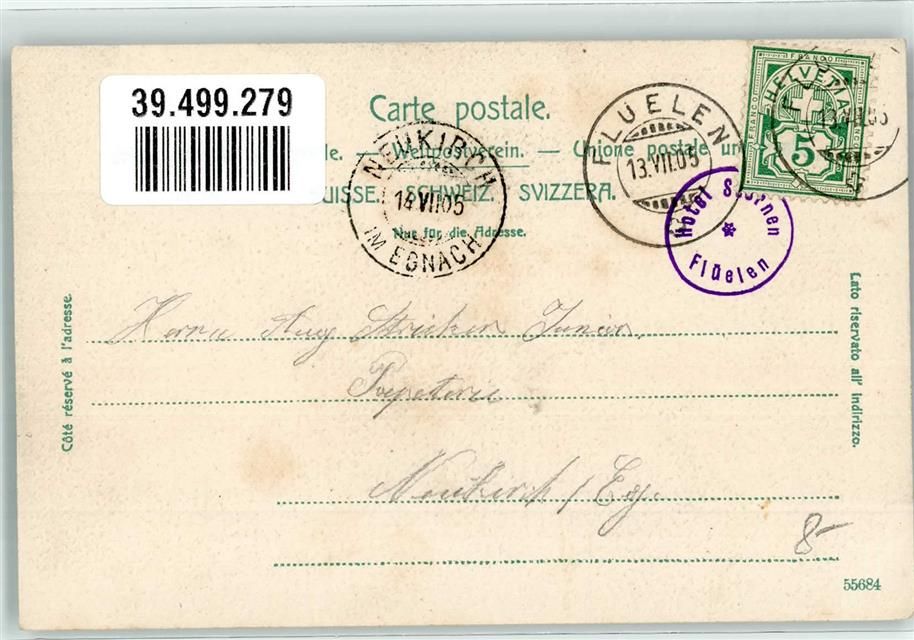 39.499.279
Carte postale.
le. — Weltpostverein. — Unione postale un
UISSE. SCHWEIZ. SVIZZERA.
Nur für die Adresse.
NEUKIRCH
14 VII 05
IM EGNACH
FLÜELEN
13.VII.05
FRANCO
HELVETIA
FRANCO
5
FRANCO
13.VII.05
Hotel Sternen
Flüelen
Côté réservé à l'adresse.
Lato riservato all' indirizzo.
Herrn Aug Junior
Papeterie
Neukirch / Eg.
8-
55684